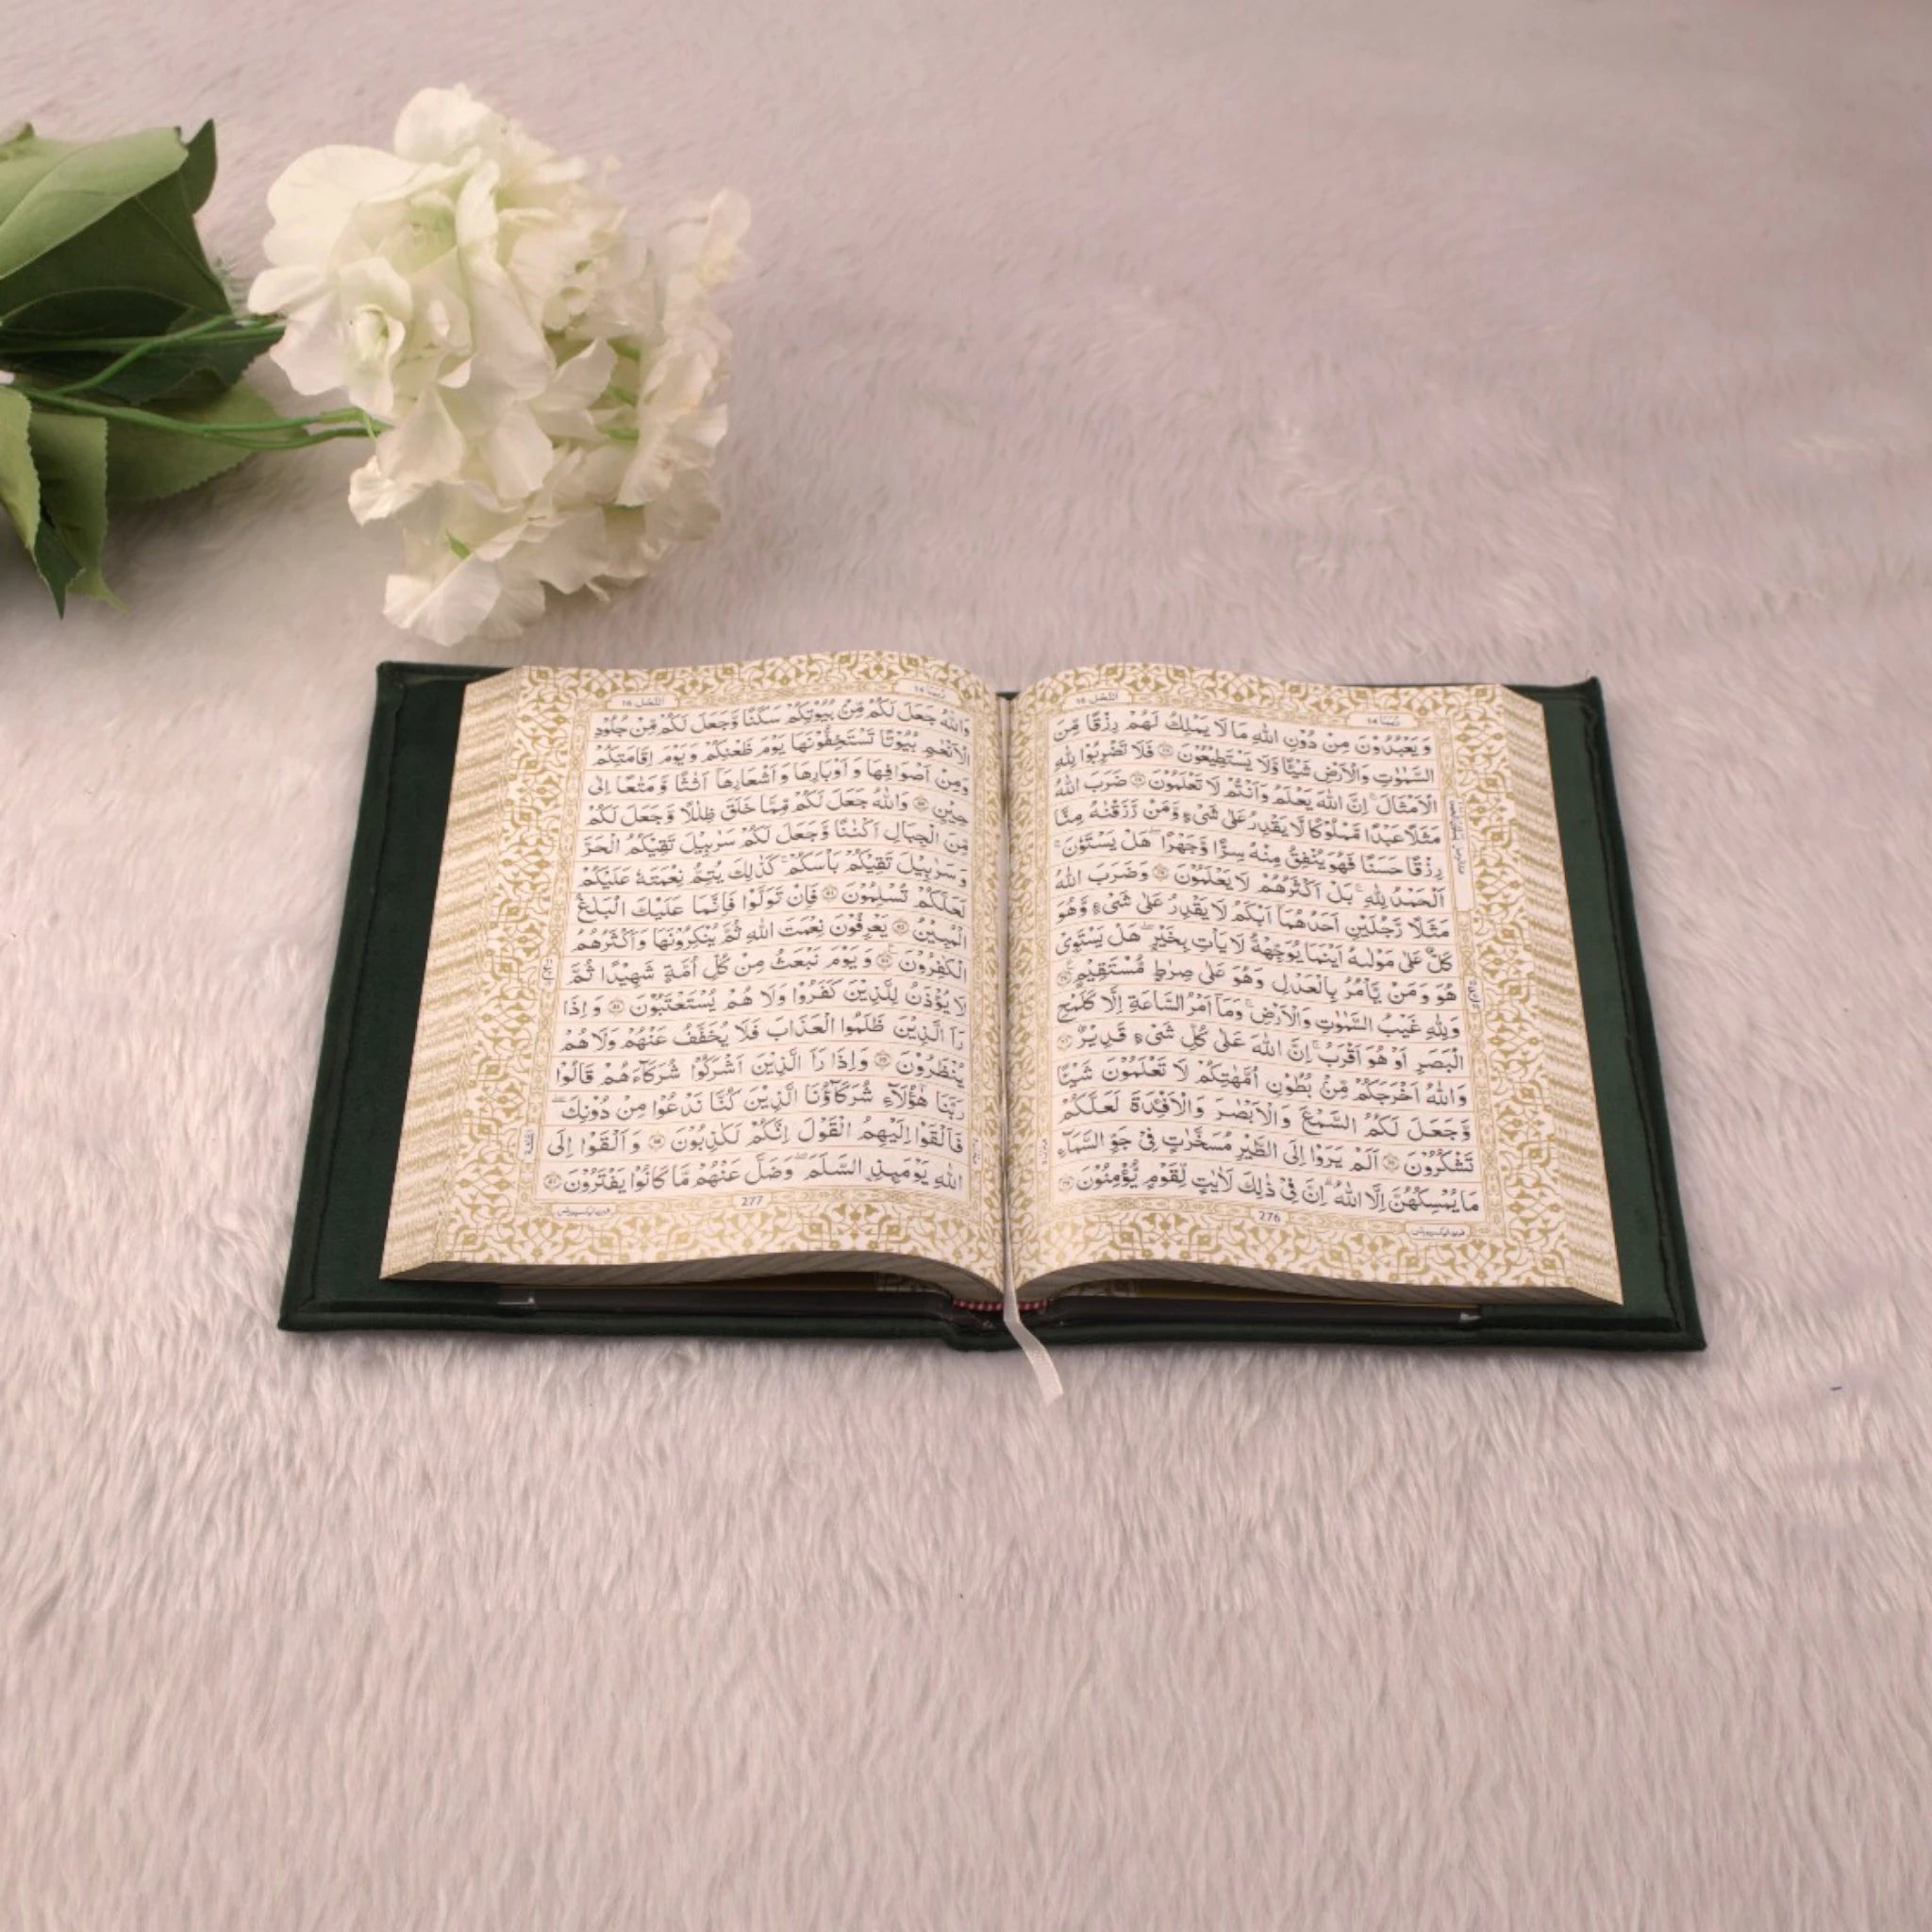 النَّحۡل ١٦
رُبَمَا ١٤
وَيَعۡبُدُوۡنَ مِنۡ دُوۡنِ اللّٰهِ مَا لَا يَمۡلِكُ لَهُمۡ رِزۡقًا مِّنَ
السَّمٰوٰتِ وَالۡاَرۡضِ شَيۡـًٔـا وَّلَا يَسۡتَطِيۡعُوۡنَ ۝ فَلَا تَضۡرِبُوۡا لِلّٰهِ
الۡاَمۡثَالَ ؕ اِنَّ اللّٰهَ يَعۡلَمُ وَاَنۡتُمۡ لَا تَعۡلَمُوۡنَ ۝ ضَرَبَ اللّٰهُ
مَثَلًا عَبۡدًا مَّمۡلُوۡكًا لَّا يَقۡدِرُ عَلٰى شَىۡءٍ وَّمَنۡ رَّزَقۡنٰهُ مِنَّا
رِزۡقًا حَسَنًا فَهُوَ يُنۡفِقُ مِنۡهُ سِرًّا وَّجَهۡرًا ؕ هَلۡ يَسۡتَوٗنَ ؕ
اَلۡحَمۡدُ لِلّٰهِ ؕ بَلۡ اَكۡثَرُهُمۡ لَا يَعۡلَمُوۡنَ ۝ وَضَرَبَ اللّٰهُ
مَثَلًا رَّجُلَيۡنِ اَحَدُهُمَاۤ اَبۡكَمُ لَا يَقۡدِرُ عَلٰى شَىۡءٍ وَّهُوَ
كَلٌّ عَلٰى مَوۡلٰىهُ اَيۡنَمَا يُوَجِّهْهُّ لَا يَاۡتِ بِخَيۡرٍ ؕ هَلۡ يَسۡتَوِىۡ
هُوَ وَمَنۡ يَّاۡمُرُ بِالۡعَدۡلِ وَهُوَ عَلٰى صِرَاطٍ مُّسۡتَقِيۡمٍ ۝
وَلِلّٰهِ غَيۡبُ السَّمٰوٰتِ وَالۡاَرۡضِ ؕ وَمَاۤ اَمۡرُ السَّاعَةِ اِلَّا كَلَمۡحِ
الۡبَصَرِ اَوۡ هُوَ اَقۡرَبُ ؕ اِنَّ اللّٰهَ عَلٰى كُلِّ شَىۡءٍ قَدِيۡرٌ ۝
وَاللّٰهُ اَخۡرَجَكُمۡ مِّنۡۢ بُطُوۡنِ اُمَّهٰتِكُمۡ لَا تَعۡلَمُوۡنَ شَيۡـًٔـا
وَّجَعَلَ لَـكُمُ السَّمۡعَ وَالۡاَبۡصٰرَ وَالۡاَفۡـِٕدَةَ لَعَلَّكُمۡ
تَشۡكُرُوۡنَ ۝ اَلَمۡ يَرَوۡا اِلَى الطَّيۡرِ مُسَخَّرٰتٍ فِىۡ جَوِّ السَّمَآءِ
مَا يُمۡسِكُهُنَّ اِلَّا اللّٰهُ ؕ اِنَّ فِىۡ ذٰلِكَ لَاٰيٰتٍ لِّقَوۡمٍ يُّؤۡمِنُوۡنَ ۝
276
النَّحۡل ١٦
رُبَمَا ١٤
وَاللّٰهُ جَعَلَ لَـكُمۡ مِّنۡۢ بُيُوۡتِكُمۡ سَكَنًا وَّجَعَلَ لَـكُمۡ مِّنۡ جُلُوۡدِ
الۡاَنۡعٰمِ بُيُوۡتًا تَسۡتَخِفُّوۡنَهَا يَوۡمَ ظَعۡنِكُمۡ وَيَوۡمَ اِقَامَتِكُمۡ
وَمِنۡ اَصۡوَافِهَا وَاَوۡبَارِهَا وَاَشۡعَارِهَاۤ اَثٰثًا وَّمَتٰعًا اِلٰى
حِيۡنٍ ۝ وَاللّٰهُ جَعَلَ لَـكُمۡ مِّمَّا خَلَقَ ظِلٰلًا وَّجَعَلَ لَـكُمۡ
مِّنَ الۡجِبَالِ اَكۡنَانًا وَّجَعَلَ لَـكُمۡ سَرٰبِيۡلَ تَقِيۡكُمُ الۡحَـرَّ
وَسَرٰبِيۡلَ تَقِيۡكُمۡ بَاۡسَكُمۡ ؕ كَذٰلِكَ يُتِمُّ نِعۡمَتَهٗ عَلَيۡكُمۡ
لَعَلَّكُمۡ تُسۡلِمُوۡنَ ۝ فَاِنۡ تَوَلَّوۡا فَاِنَّمَا عَلَيۡكَ الۡبَلٰغُ
الۡمُبِيۡنُ ۝ يَعۡرِفُوۡنَ نِعۡمَتَ اللّٰهِ ثُمَّ يُنۡكِرُوۡنَهَا وَاَكۡثَرُهُمُ
الۡكٰفِرُوۡنَ ۝ وَيَوۡمَ نَـبۡعَثُ مِنۡ كُلِّ اُمَّةٍ شَهِيۡدًا ثُمَّ
لَا يُؤۡذَنُ لِلَّذِيۡنَ كَفَرُوۡا وَلَا هُمۡ يُسۡتَعۡتَبُوۡنَ ۝ وَاِذَا
رَاَ الَّذِيۡنَ ظَلَمُوا الۡعَذَابَ فَلَا يُخَفَّفُ عَنۡهُمۡ وَلَا هُمۡ
يُنۡظَرُوۡنَ ۝ وَاِذَا رَاَ الَّذِيۡنَ اَشۡرَكُوۡا شُرَكَآءَهُمۡ قَالُوۡا
رَبَّنَا هٰٓؤُلَآءِ شُرَكَآؤُنَا الَّذِيۡنَ كُنَّا نَدۡعُوۡا مِنۡ دُوۡنِكَ ۚ
فَاَلۡقَوۡا اِلَيۡهِمُ الۡقَوۡلَ اِنَّكُمۡ لَـكٰذِبُوۡنَ ۝ وَاَلۡقَوۡا اِلَى
اللّٰهِ يَوۡمَٮِٕذِ اۨلسَّلَمَ وَضَلَّ عَنۡهُمۡ مَّا كَانُوۡا يَفۡتَرُوۡنَ ۝
277